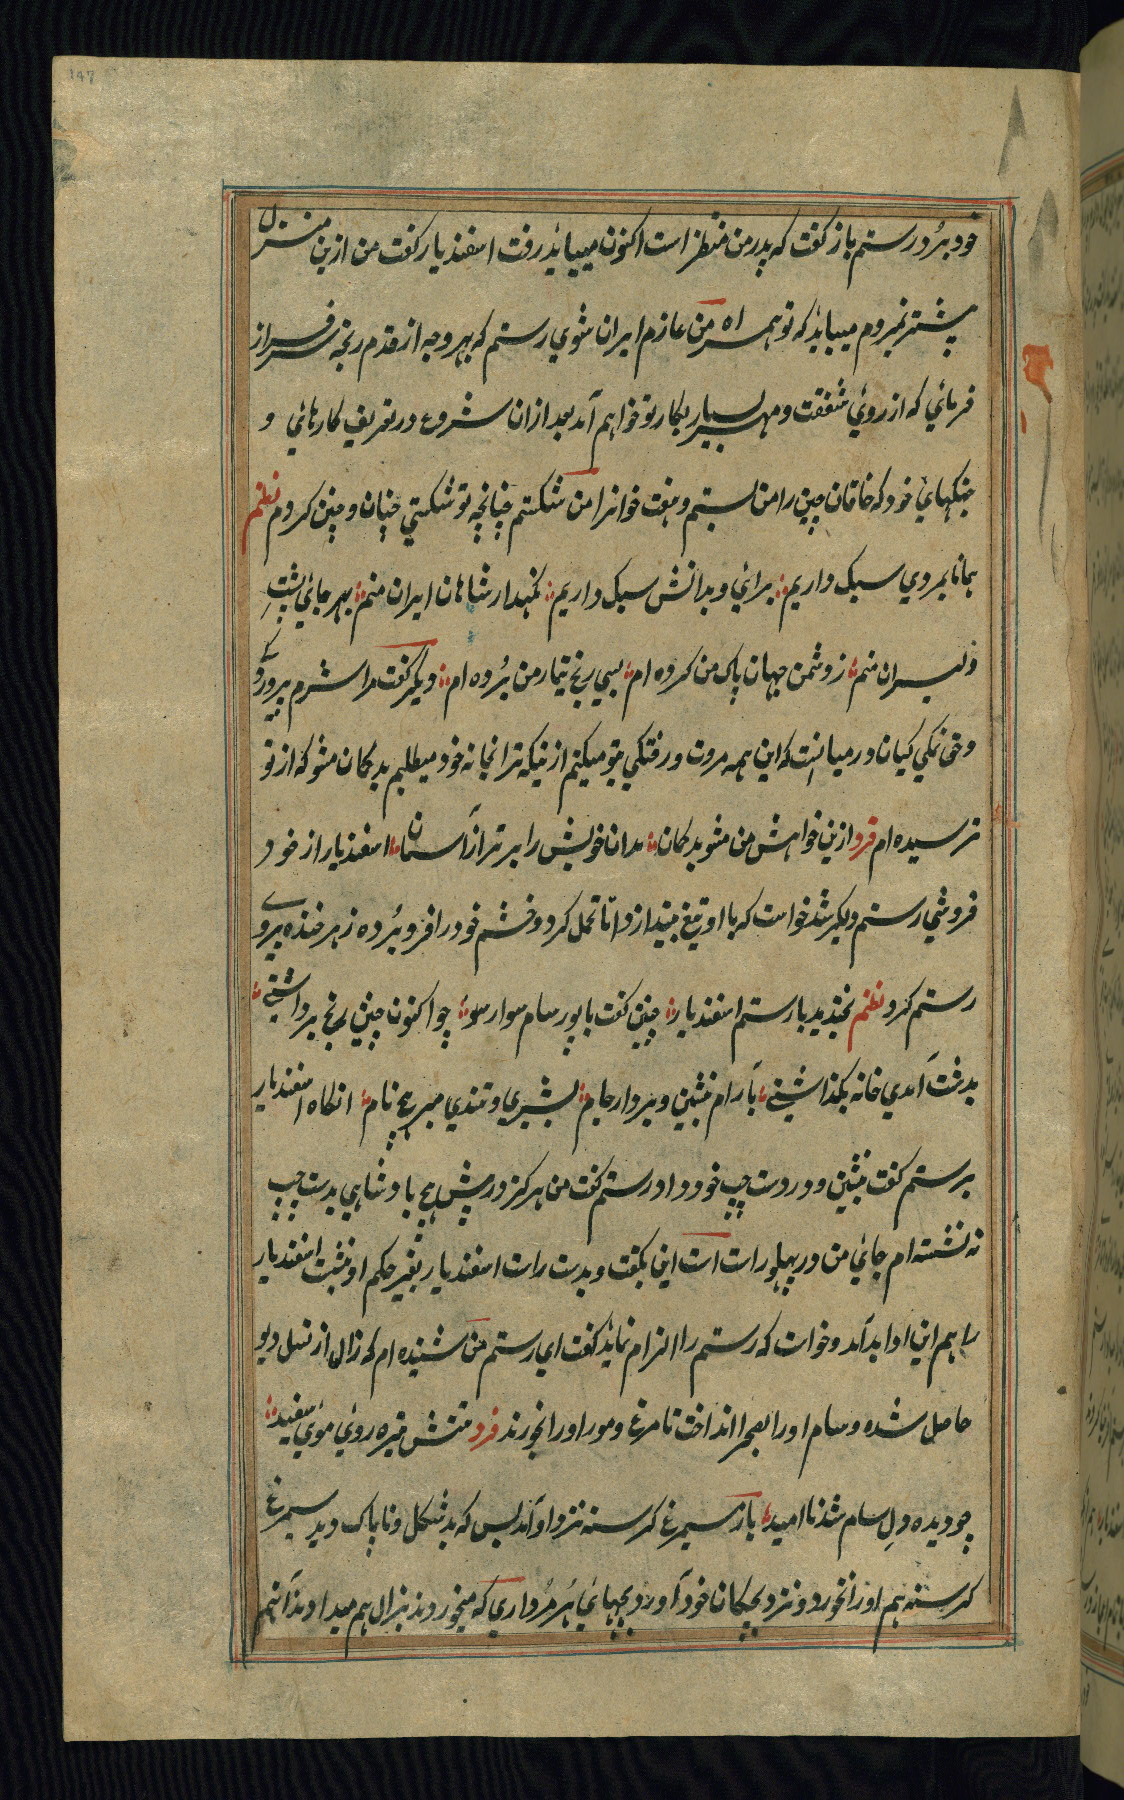 ۱۴۷
خود ببُرد رستم باز گفت که پدر من منتظر است اکنون میباید رفت اسفندیار گفت من ازین منزل
پیشتر نمیروم میباید که تو همراه من عازم ایران شوي رستم که بهر وجه از قدم رنجه سرفراز
فرمائي که از روي شفقت و مهر بسیار بکار تو خواهم آمد بعد ازان شروع در تعریف کارهائي و
جنگهاي خود که خاقان چین را من بستم و هفت خوانرا من شکستم چنانچه تو شکستي چنان و چنین کردم نظم
همانا بمردي سبک داریم براي و بدانش سبک داریم نگهدار شاهان ایران منم بهر جائي پشتِ
دلیران منم ز دشمن جهان پاک من کرده ام بسي رنج و تیمار من بُرده ام دیگر گفت مرا شرم پرورد‌گي
و حق نمکي کیان در میانست که این همه مروت و رفتگي بتو میکنم ازینکه ترا نخانه خود میطلبم بد گمان مشو که از تو
ترسیده ام فرد ازین خواهش من مشو بدگمان مدان خویش را برتر از آسمان اسفندیار از خود
فروشي رستم دلگیر شد خواست که با او تیغ بیندازد اما تحمل کرد و خشم خود را فرو بُرده زهر خنده بروي
رستم کرد نظم بخندید با رستم اسفندیار چنین گفت با پور سام سوار چو اکنون چنین رنج برداشتي
بدشت آمدي خانه بگذاشتي بآرام بنشین و بردار جام بشیري و تندي مبر هیچ نام انگاه اسفندیار
برستم گفت بنشین و در دست چپ خود داد رستم گفت من هرگز در پیش هیچ بادشاهي بدست چپ
نه نشسته ام جائي من در پهلو راست است این بگفت و بدست راست اسفندیار بغیر حکم او نشست اسفندیار
را هم این ادا بد آمد و خواست که رستم را الزام نماید گفت اي رستم من شنیده ام که زال از نسل دیو
حاصل شده و سام او را بصحرا انداخت تا مرغ و مور او را بخورند فرد تنش تیره روي موي سفید
چو دیده دلِ سام شد ناامید باز سیمرغ گرسنه نزد او آمد بس که بد شکل و ناپاک دید سیمرغ
گرسنه هم او را نخورد و نزد بچگان خود آورد بچهائي هر مُرداري که میخوردند بزال هم میدادند آنهم